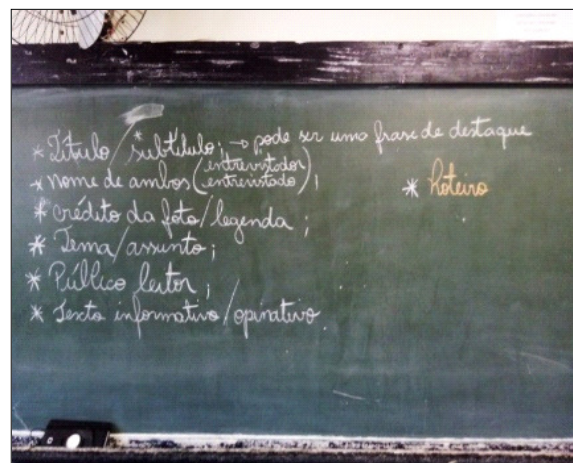 * Título / *subtítulo; → pode ser uma frase de destaque
* nome de ambos (entrevistador
entrevistado);
* Roteiro
* crédito da foto/legenda;
* Tema/assunto;
* Público leitor;
* Texto informativo/opinativo.